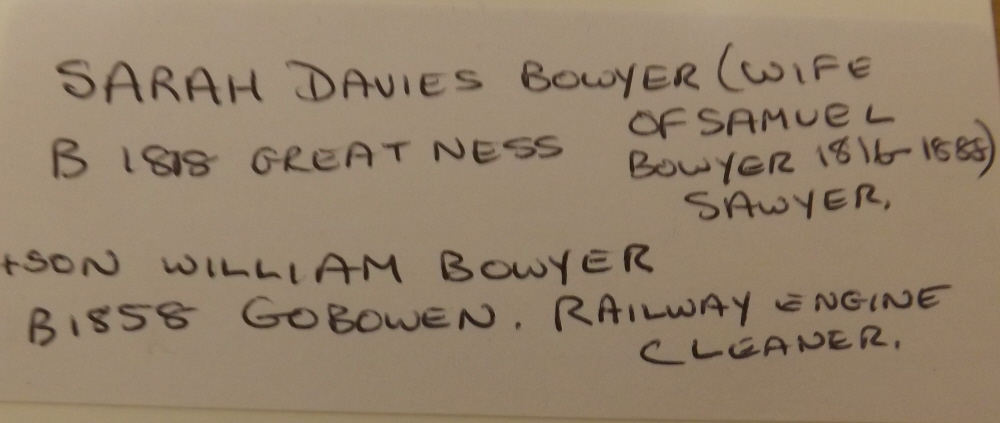 SARAH DAVIES BOWYER (WIFE
OF SAMUEL
B 1818 GREAT NESS BOWYER 1816-1888)
SAWYER.
+SON WILLIAM BOWYER
B1858 GOBOWEN. RAILWAY ENGINE
CLEANER.